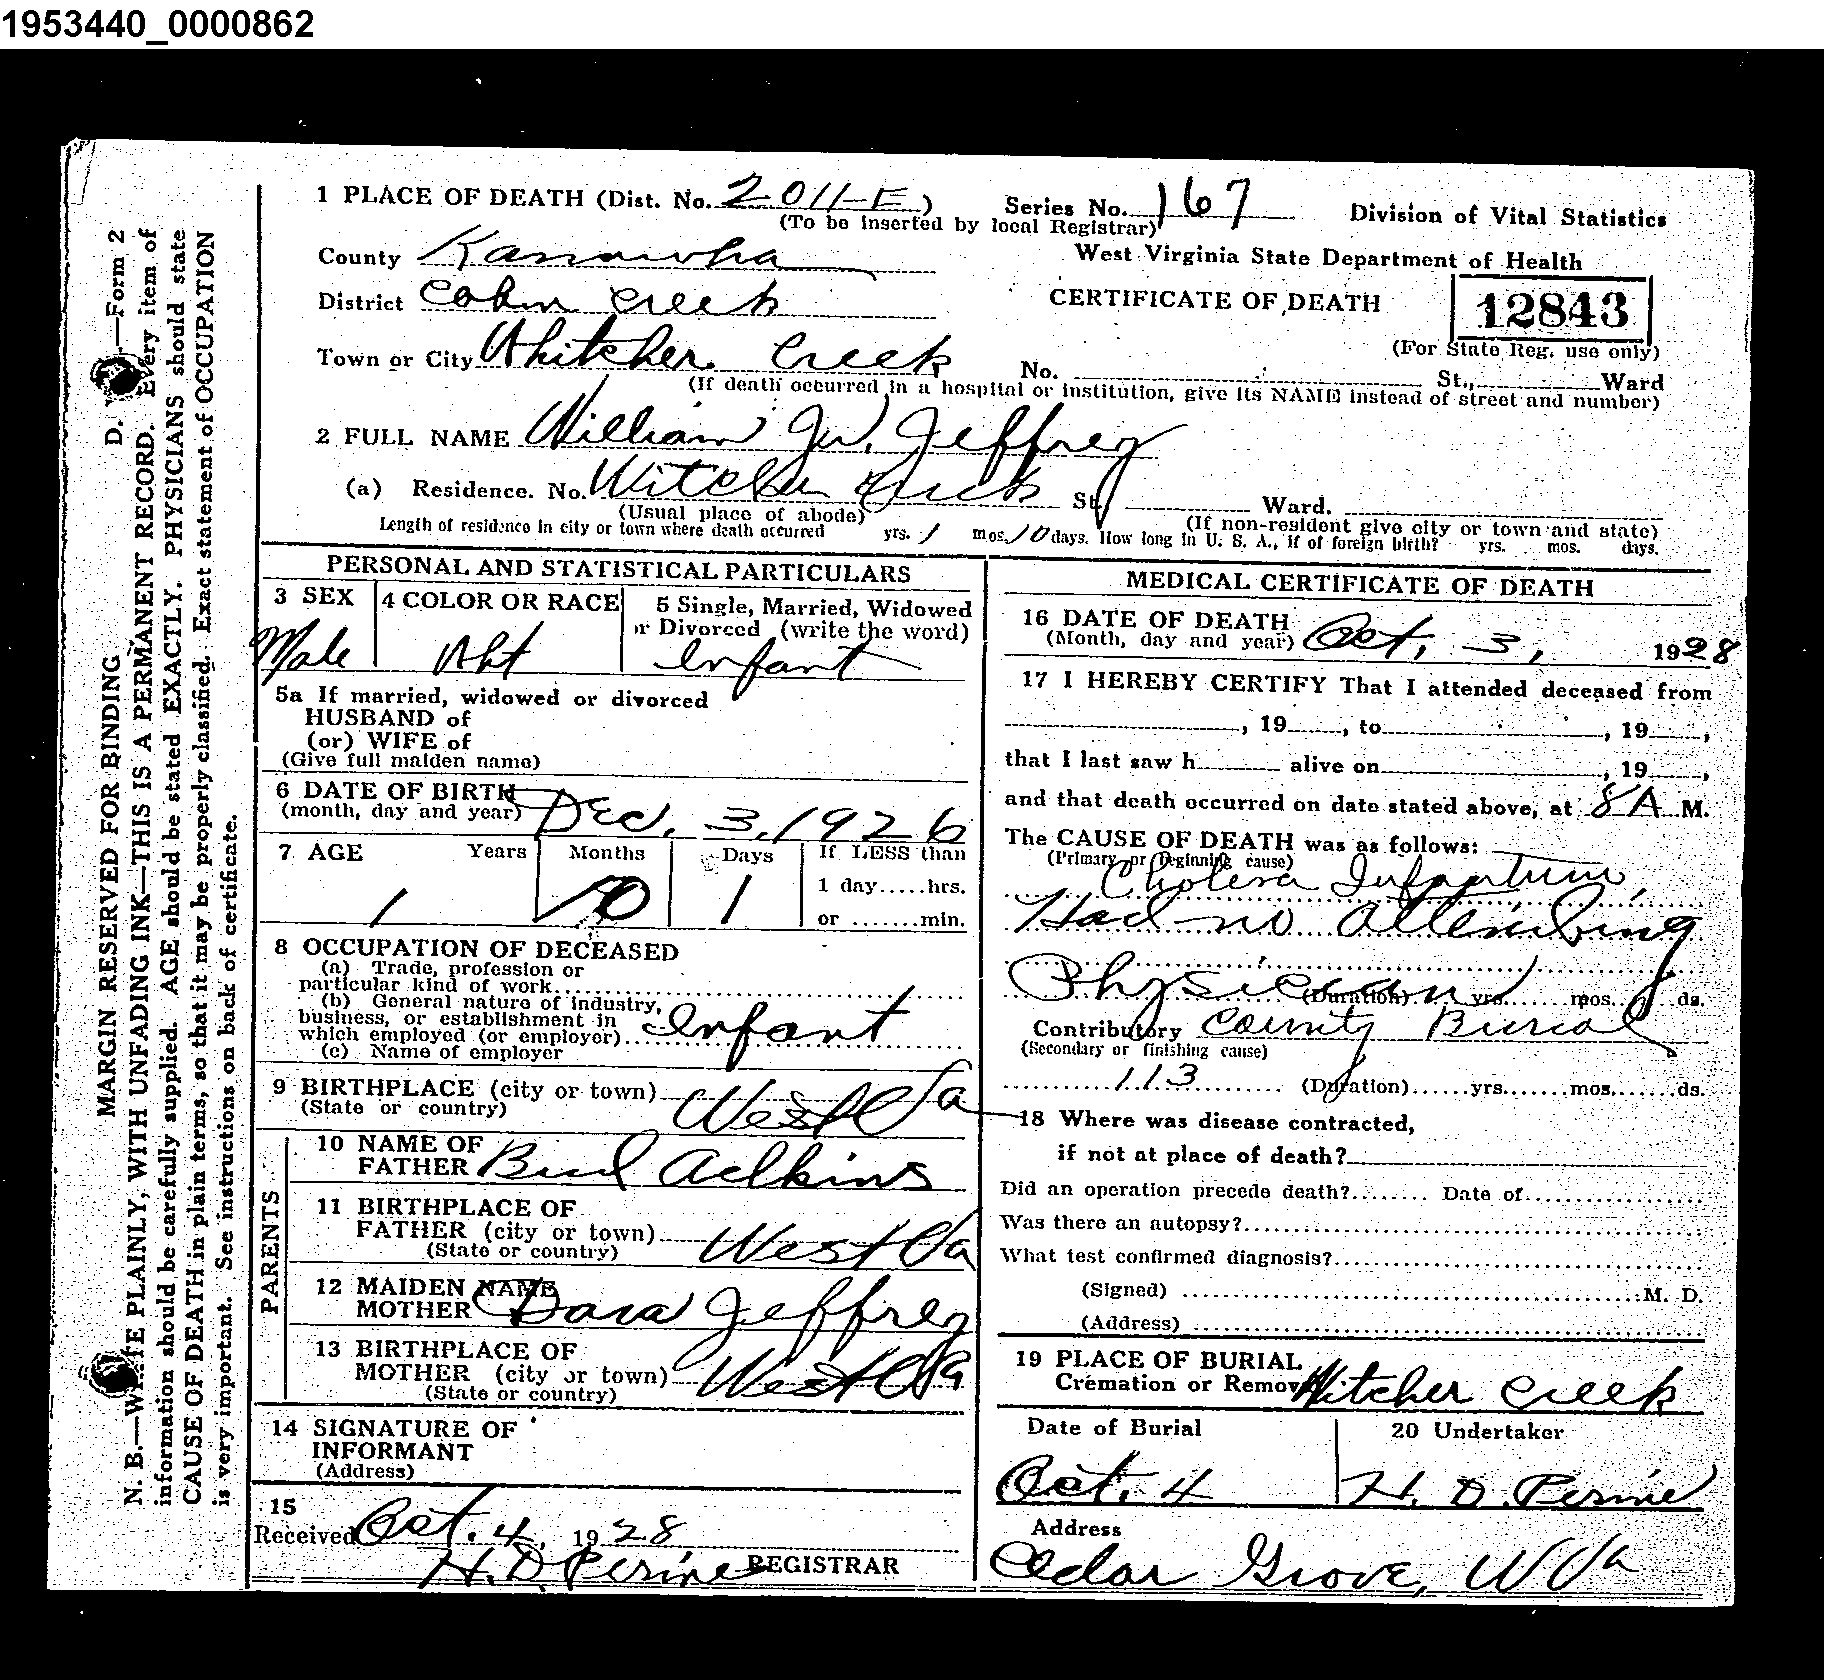 1953440_0000862
1 PLACE OF DEATH (Dist. No. 2011-E) Series No. 167 Division of Vital Statistics
(To be inserted by local Registrar)
County Kanawha West Virginia State Department of Health
District Cabin Creek CERTIFICATE OF DEATH 12843
(For State Reg. use only)
Town or City Whitcher Creek No. St., Ward
(If death occurred in a hospital or institution, give its NAME instead of street and number)
2 FULL NAME William Jeffrey
(a) Residence. No. Witcher Creek St. Ward.
(Usual place of abode) (If non-resident give city or town and state)
Length of residence in city or town where death occurred yrs. 1 mos. 10 days. How long in U. S. A., if of foreign birth? yrs. mos. days.
PERSONAL AND STATISTICAL PARTICULARS
3 SEX 4 COLOR OR RACE 5 Single, Married, Widowed
or Divorced (write the word)
Male Wht Infant
5a If married, widowed or divorced
HUSBAND of
(or) WIFE of
(Give full maiden name)
6 DATE OF BIRTH
(month, day and year) Dec. 3, 1926
7 AGE Years Months Days If LESS than
1 day.....hrs.
1 10 1 or ........min.
8 OCCUPATION OF DECEASED
(a) Trade, profession or
particular kind of work
(b) General nature of industry,
business, or establishment in
which employed (or employer) Infant
(c) Name of employer
9 BIRTHPLACE (city or town)
(State or country) West Va
PARENTS
10 NAME OF
FATHER Bud Adkins
11 BIRTHPLACE OF
FATHER (city or town)
(State or country) West Va
12 MAIDEN NAME
MOTHER Dora Jeffrey
13 BIRTHPLACE OF
MOTHER (city or town)
(State or country) West Va
14 SIGNATURE OF
INFORMANT
(Address)
15
Received Oct. 4, 1928
H. D. Perine REGISTRAR
MEDICAL CERTIFICATE OF DEATH
16 DATE OF DEATH
(Month, day and year) Oct. 3, 1928
17 I HEREBY CERTIFY That I attended deceased from
, 19 , to , 19 ,
that I last saw h alive on , 19 ,
and that death occurred on date stated above, at 8 A M.
The CAUSE OF DEATH was as follows:
(Primary or Beginning cause)
Cholera Infantum,
Had no attending
Physician
(Duration) yrs. mos. ds.
Contributory County Burial
(Secondary or finishing cause)
113 (Duration) yrs. mos. ds.
18 Where was disease contracted,
if not at place of death?
Did an operation precede death? Date of
Was there an autopsy?
What test confirmed diagnosis?
(Signed) M. D.
(Address)
19 PLACE OF BURIAL
Cremation or Removal Witcher Creek
Date of Burial 20 Undertaker
Oct. 4 H. D. Perine
Address
Cedar Grove, W Va
D. —Form 2
MARGIN RESERVED FOR BINDING
N. B.—WRITE PLAINLY, WITH UNFADING INK—THIS IS A PERMANENT RECORD. Every item of
information should be carefully supplied. AGE should be stated EXACTLY. PHYSICIANS should state
CAUSE OF DEATH in plain terms, so that it may be properly classified. Exact statement of OCCUPATION
is very important. See instructions on back of certificate.